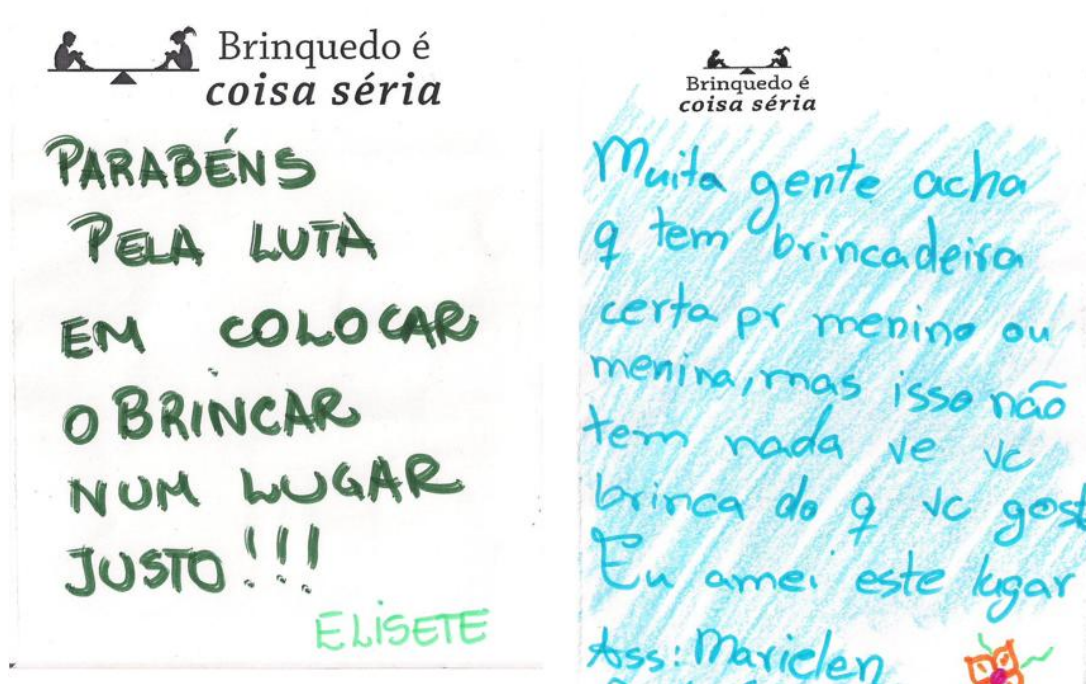 Brinquedo é
coisa séria
PARABÉNS
PELA LUTA
EM COLOCAR
O BRINCAR
NUM LUGAR
JUSTO!!!
ELISETE
Brinquedo é
coisa séria
Muita gente acha
q tem brincadeira
certa pr menino ou
menina, mas isso não
tem nada ve vc
brinca do q vc gost
Eu amei este lugar
Ass: Marielen